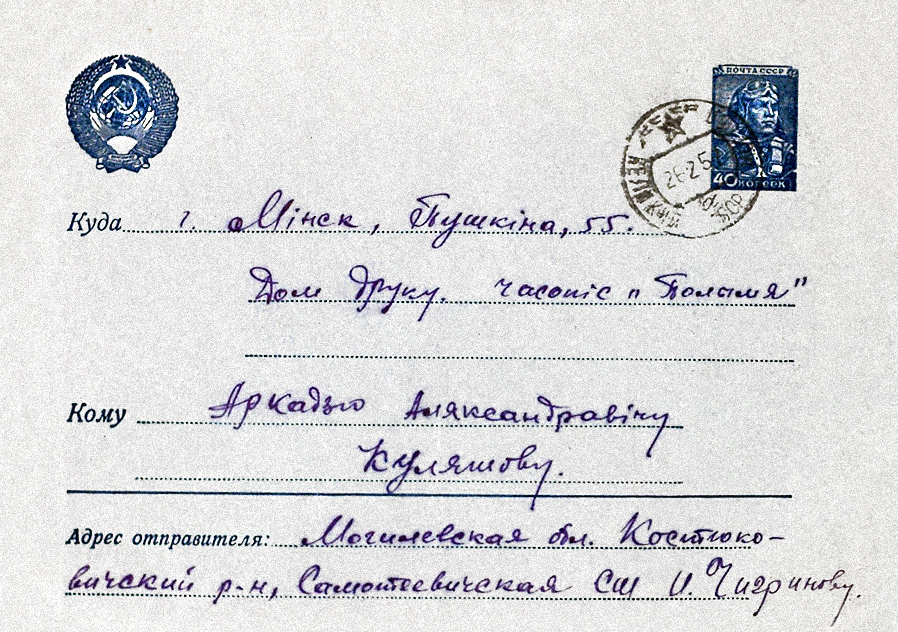 ПОЧТА СССР
40 КОПЕЕК
26 2 5
Куда г. Мінск, Пушкіна, 55.
Дом друку. часопіс „Полымя”
Кому Аркадзю Аляксандравічу
Куляшову.
Адрес отправителя: Могилевская обл. Костюко-
вичский р-н, Самотеевичская СШ И. Чигринову.